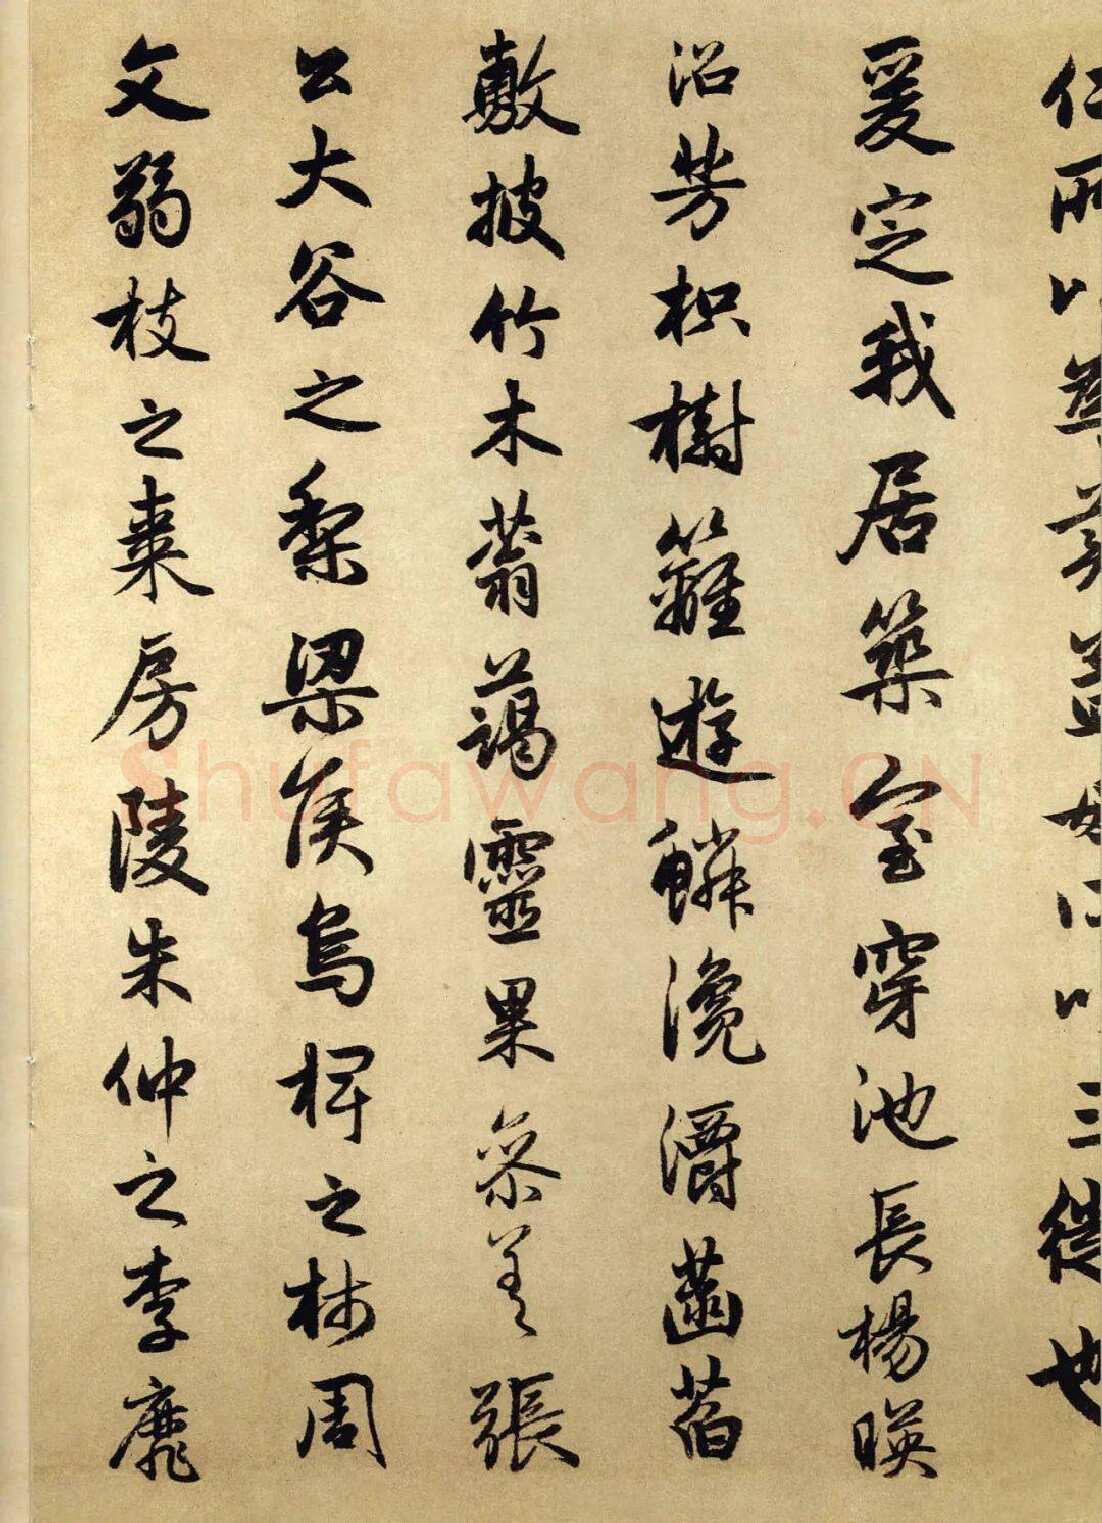 仁所以為美孟母所以三徙也
爰定我居築室穿池長楊暎
沼芳枳樹籬遊鱗瀺灂菡萏
敷披竹木蓊藹靈果參差張
公大谷之梨梁侯烏椑之柿周
文弱枝之棗房陵朱仲之李靡
Shufawang.CN